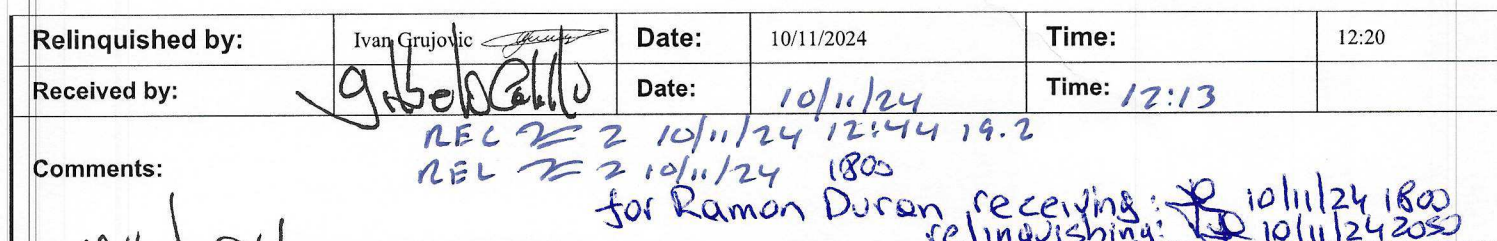 Relinquished by: Ivan Grujovic Date: 10/11/2024 Time: 12:20
Received by: Date: 10/11/24 Time: 12:13
REC 2 10/11/24 12:44 19.2
Comments: REL 2 10/11/24 1800
for Ramon Duran receiving: 10/11/24 1800
relinquishing: 10/11/24 2050